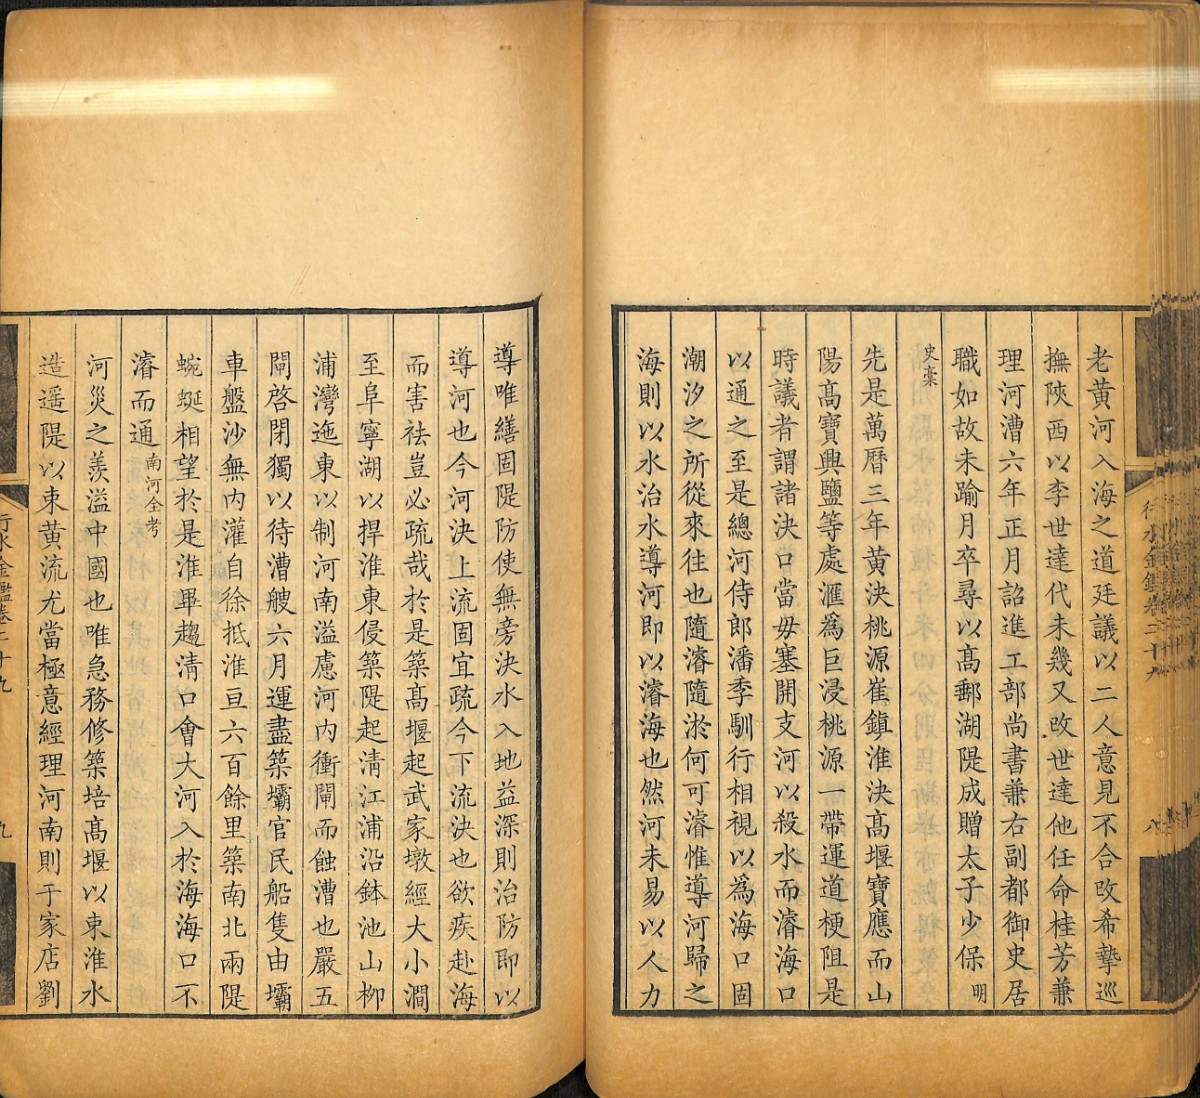 老黃河入海之道廷議以二人意見不合改希摯巡
撫陝西以李世達代未幾又改世達他任命桂芳兼
理河漕六年正月詔進工部尚書兼右副都御史居
職如故未踰月卒尋以高郵湖隄成贈太子少保明
史稾
先是萬曆三年黃決桃源崔鎮淮決高堰寶應而山
陽高寶興鹽等處滙為巨浸桃源一帶運道梗阻是
時議者謂諸決口當毋塞開支河以殺水而濬海口
以通之至是總河侍郎潘季馴行相視以為海口固
潮汐之所從來往也隨濬隨淤何可濬惟導河歸之
海則以水治水導河即以濬海也然河未易以人力
導唯繕固隄防使無旁決水入地益深則治防即以
導河也今河決上流固宜疏今下流決也欲疾赴海
而害祛豈必疏哉於是築高堰起武家墩經大小澗
至阜寧湖以捍淮東侵築隄起清江浦沿鉢池山柳
浦灣迤東以制河南溢慮河內衝閘而蝕漕也嚴五
閘啓閉獨以待漕艘六月運盡築壩官民船隻由壩
車盤沙無內灌自徐抵淮亘六百餘里築南北兩隄
蜿蜒相望於是淮畢趨清口會大河入於海海口不
濬而通南河全考
河災之羨溢中國也唯急務修築培高堰以束淮水
造遥隄以束黃流尤當極意經理河南則于家店劉
行水金鑑卷二十九
九